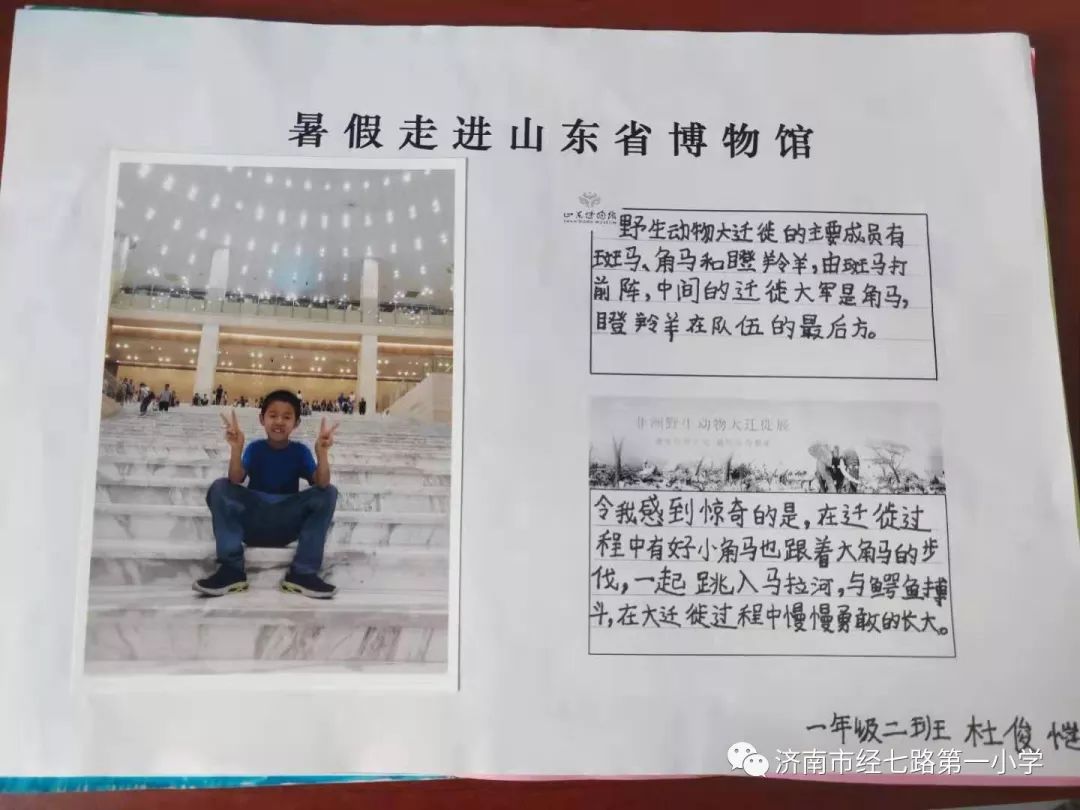 暑假走进山东省博物馆
山东博物馆
野生动物大迁徙的主要成员有
斑马、角马和瞪羚羊，由斑马打
前阵，中间的迁徙大军是角马，
瞪羚羊在队伍的最后方。
非洲野生动物大迁徙展
令我感到惊奇的是，在迁徙过
程中有好小角马也跟着大角马的步
伐，一起跳入马拉河，与鳄鱼搏
斗，在大迁徙过程中慢慢勇敢的长大。
一年级二班 杜俊恺
济南市经七路第一小学